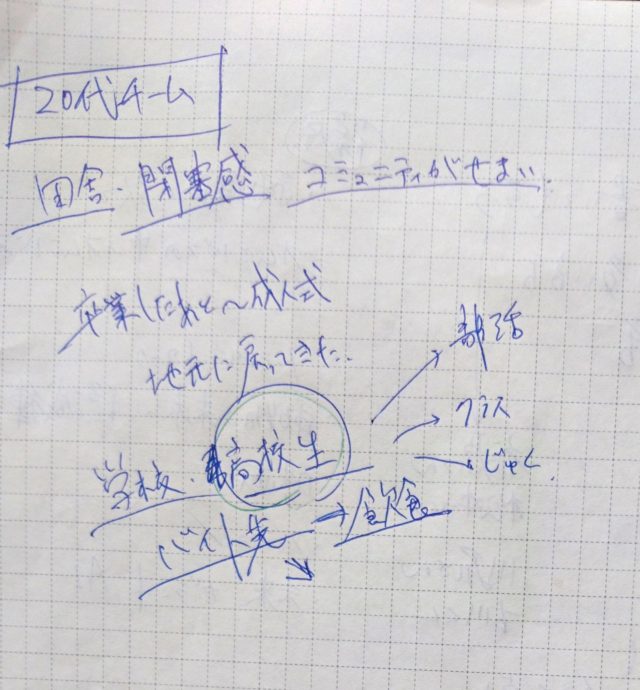 20代チーム
田舎・閉塞感 コミュニティがせまい.
卒業したあと〜成人式
地元に戻ってきた.
部活
クラス
じゅく.
学校・高校生
バイト先 → 飲食